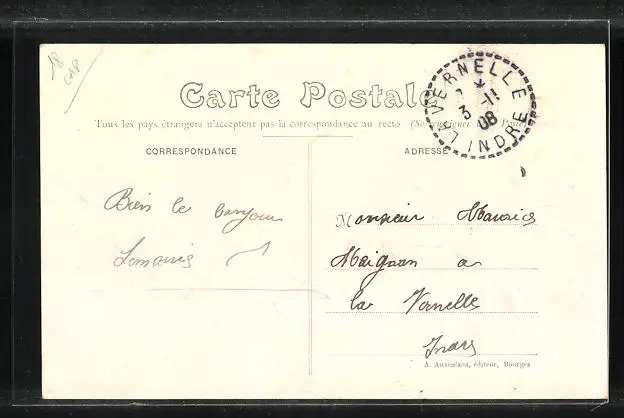 18
CAP
Carte Postale
Tous les pays étrangers n'acceptent pas la correspondance au recto (Se renseigner Poste)
LA VERNELLE
3 -11
08
INDRE
CORRESPONDANCE
ADRESSE
Bien le bonjour
Monsieur Maurice
Maignan a
la Vernelle
Indre
A. Auxenfans, éditeur, Bourges